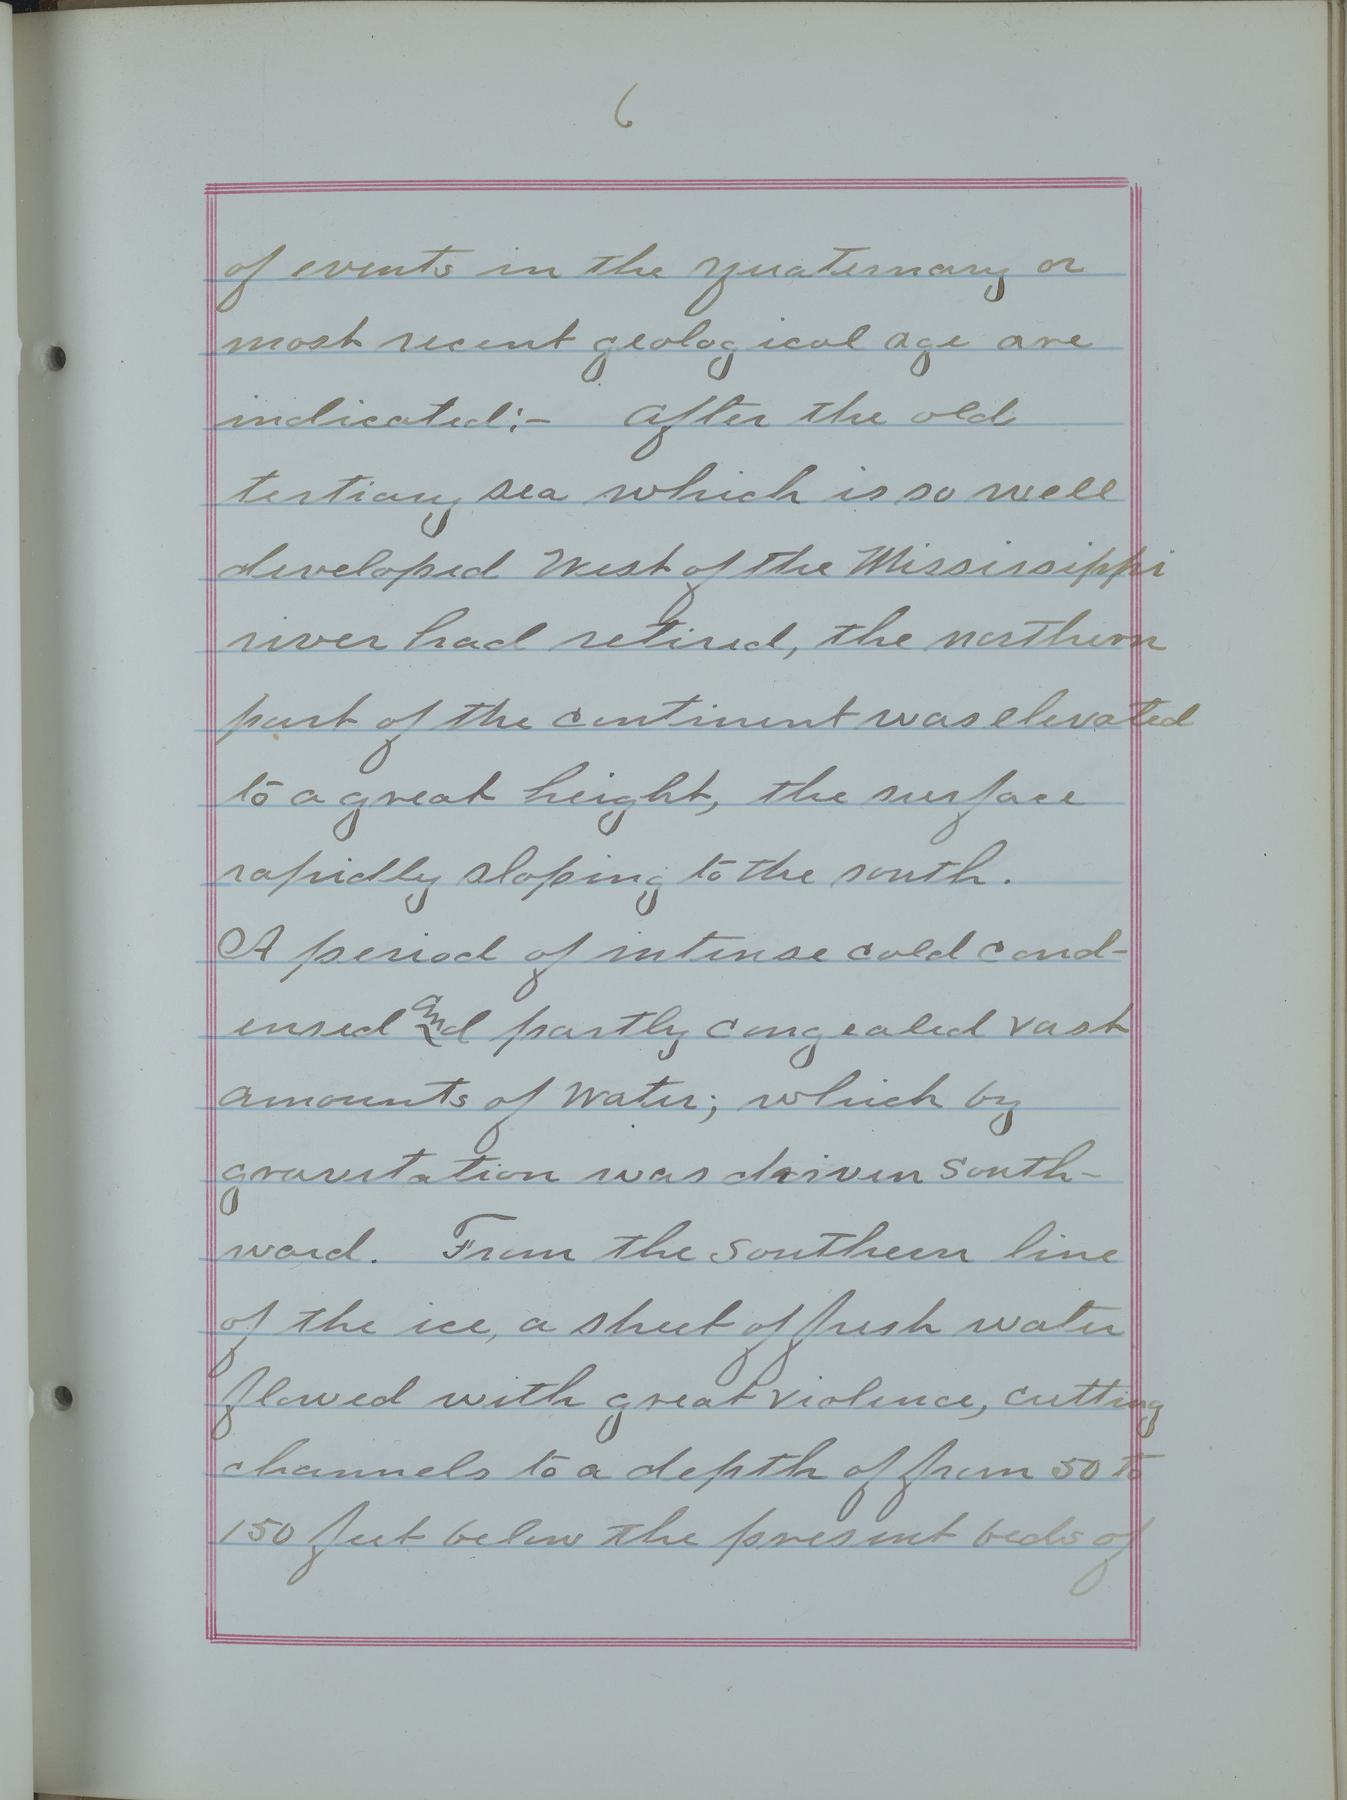 6
of events in the Quaternary or
most recent geological age are
indicated:- After the old
tertiary sea which is so well
developed West of the Mississippi
river had retired, the northern
part of the continent was elevated
to a great height, the surface
rapidly sloping to the south.
A period of intense cold cond-
ensed and partly congealed vast
amounts of Water; which by
gravitation was driven South-
ward. From the Southern line
of the ice, a sheet of fresh water
flowed with great violence, cutting
channels to a depth of from 50 to
150 feet below the present beds of